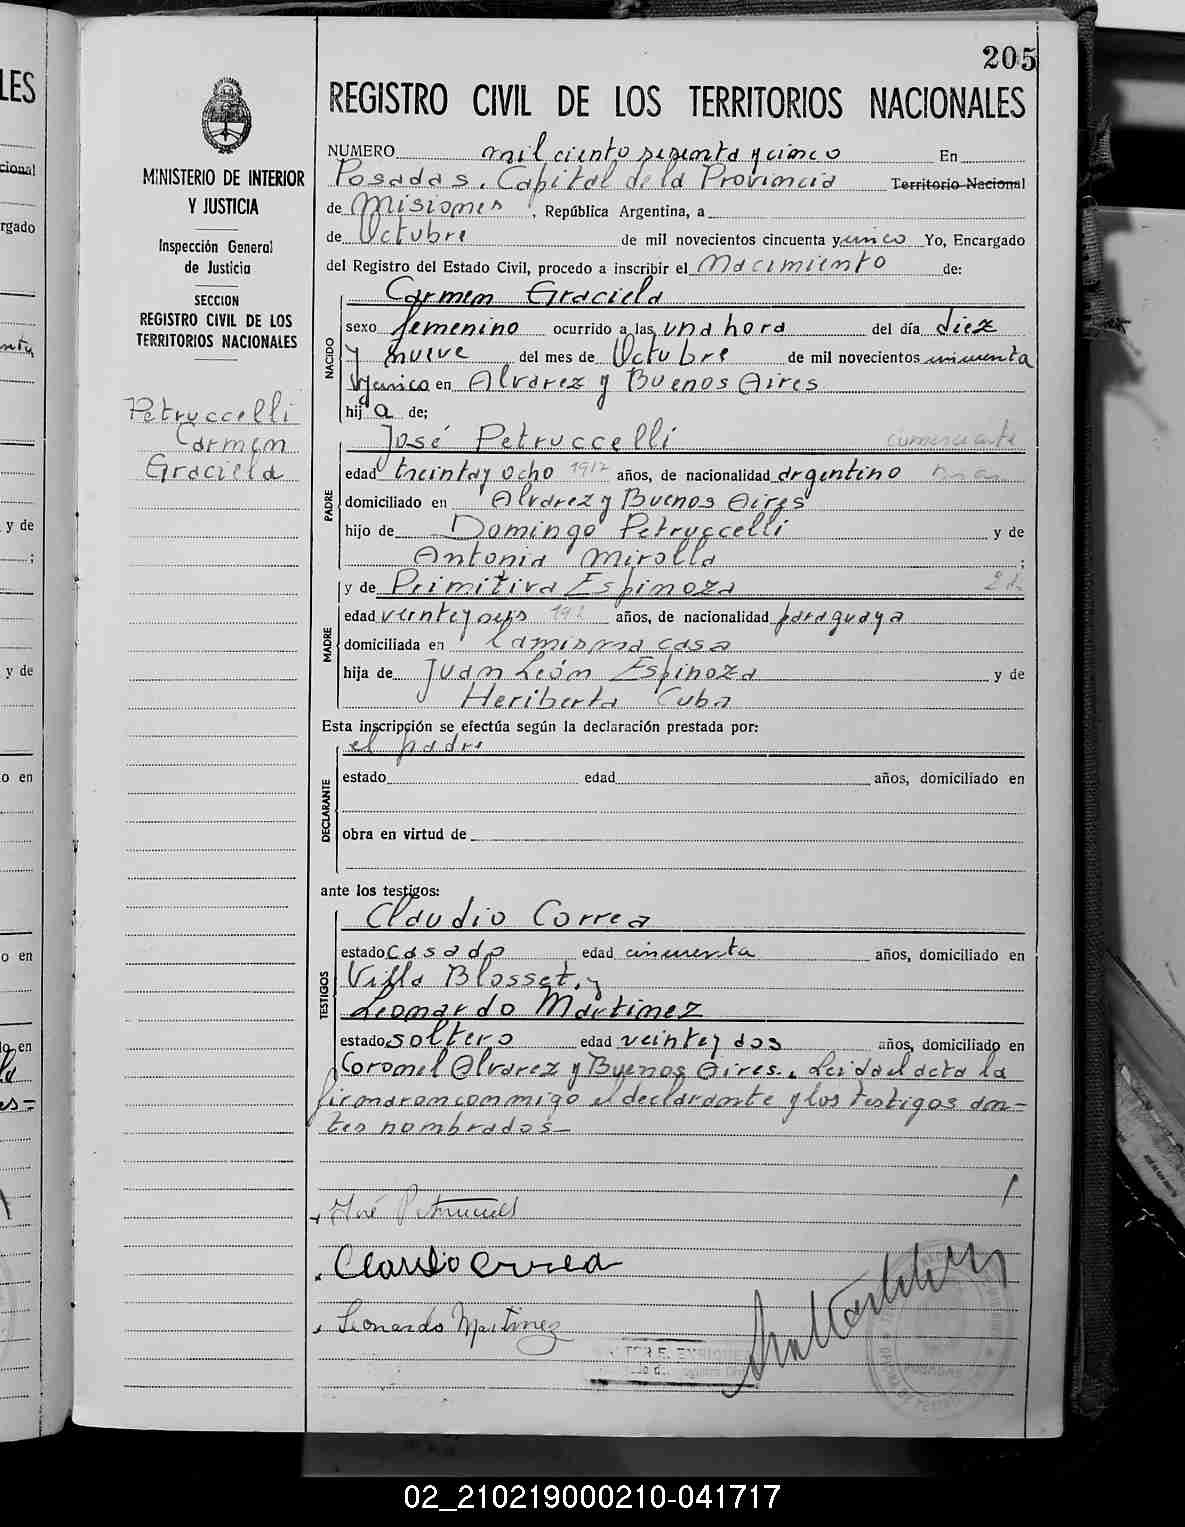 205
LES
REGISTRO CIVIL DE LOS TERRITORIOS NACIONALES
MINISTERIO DE INTERIOR
Y JUSTICIA
Inspección General
de Justicia
SECCION
REGISTRO CIVIL DE LOS
TERRITORIOS NACIONALES
Petruccelli
Carmen
Graciela
NUMERO mil ciento sesenta y cinco En
Posadas, Capital de la Provincia Territorio Nacional
de Misiones, República Argentina, a
de Octubre de mil novecientos cincuenta y unco Yo, Encargado
del Registro del Estado Civil, procedo a inscribir el Nacimiento de:
Carmen Graciela
NACIDO
sexo femenino ocurrido a las una hora del día diez
y nueve del mes de Octubre de mil novecientos cincuenta
y unco en Alvarez y Buenos Aires
hija de;
José Petruccelli comerciante
PADRE
edad treintay ocho 1912 años, de nacionalidad argentino
domiciliado en Alvarez y Buenos Aires
hijo de Domingo Petruccelli y de
Antonia Mirolla;
y de Primitiva Espinoza
MADRE
edad veintey seis años, de nacionalidad paraguaya
domiciliada en la misma casa
hija de Juan León Espinoza y de
Heriberta Cuba
Esta inscripción se efectúa según la declaración prestada por:
el padre
DECLARANTE
estado edad años, domiciliado en
obra en virtud de
ante los testigos:
Claudio Correa
TESTIGOS
estado casado edad cincuenta años, domiciliado en
Villa Blosset. y
Leonardo Martinez
estado soltero edad veintey dos años, domiciliado en
Coronel Alvarez y Buenos Aires. Leida el acta la
firmaron conmigo el declarante y los testigos an-
tes nombrados—
José Petruccelli
Claudio Correa
Leonardo Martinez
02_210219000210-041717